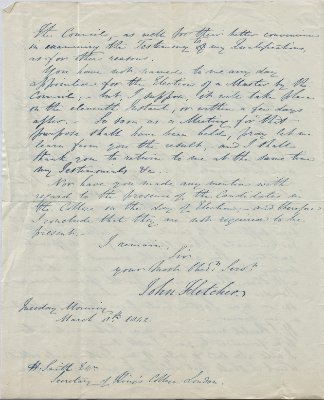 the Council, as well for their better convenience
in examining the Testimony of my Qualifications,
as for other reasons.
You have not named to me any day
appointed for the Election of a Master by the
Council; but, I suppose, it will take place
on the eleventh Instant, or within a few days
after. So soon as a Meeting for that
purpose shall have been held, pray let me
learn from you the result, and I shall
thank you to return to me at the same time
my Testimonials &c.
Nor have you made any mention with
regard to the presence of the Candidates in
the College on the day of Election, and therefore
I conclude that they are not required to be
present.
I remain,
Sir
your Most Obdt. Servt.
John Fletcher.
Tuesday Morning
March 1842.
H. Smith Esqr.
Secretary of King's College London.